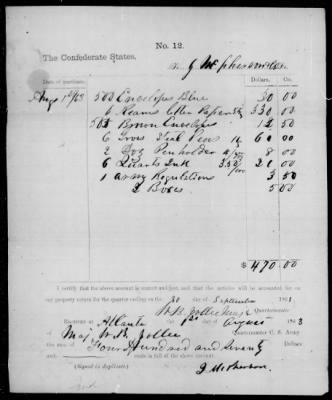 No. 12.
The Confederate States.
Date of purchase. Dollars. Cents.
Augt 1st/63 500 Envelopes Blue 30 00
6 Reams Letter Paper 330 00
500 Brown Envelopes 12 50
6 Gross Steel Pens 60 00
2 Doz Penholder 8 00
6 Quarts Ink 3.50/100 21 00
1 Army Regulations 3 50
2 Boxes 5 00
$470.00
I certify that the above account is correct and just, and that the articles will be accounted for on
my property return for the quarter ending on the 30 day of September 1863
Quartermaster
Received at Atlanta the 1st day of August 1863
of Maj. Quartermaster C. S. Army
the sum of Four Hundred and Seventy Dollars
and cents in full of the above account.
(Signed in duplicate)
J McPherson